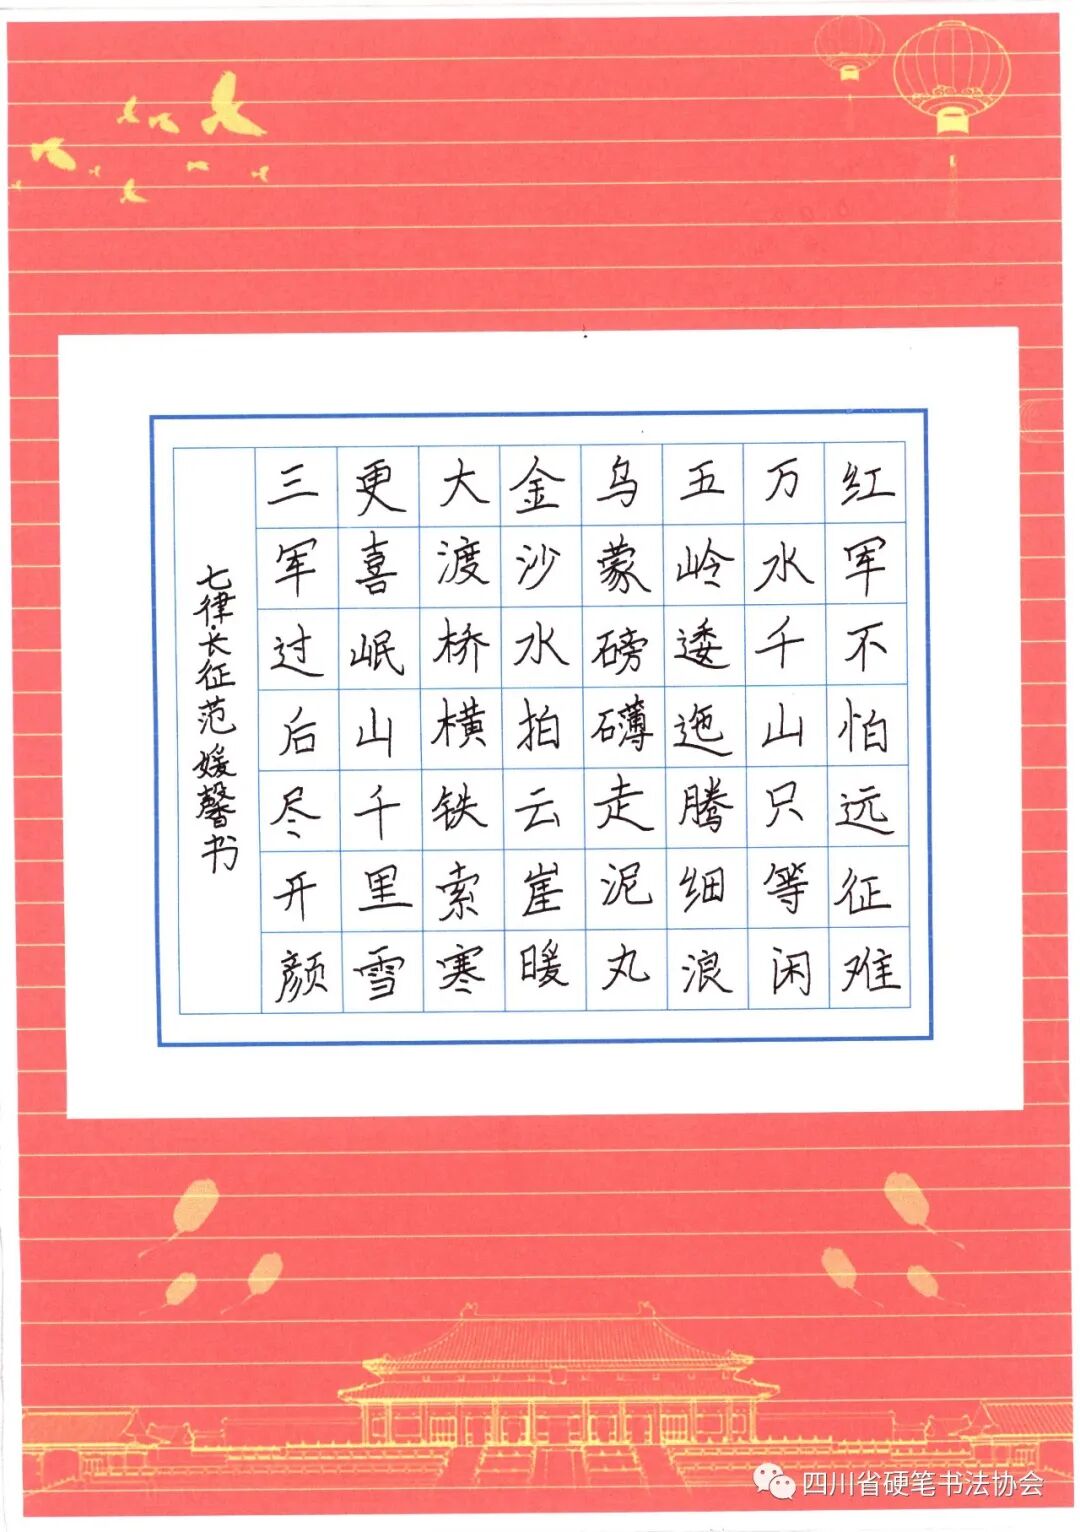 红军不怕远征难
万水千山只等闲
五岭逶迤腾细浪
乌蒙磅礴走泥丸
金沙水拍云崖暖
大渡桥横铁索寒
更喜岷山千里雪
三军过后尽开颜
七律·长征范媛馨书
四川省硬笔书法协会